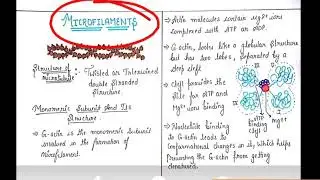 MICROFILAMENTS
Structure of
Microtubule :- Twisted or Intertwined
double Stranded
Structure.
Monomeric Subunit And Its
Structure
→ G-actin is the monomeric Subunit
involved in the formation of
Microfilament.
→ Actin molecules contain Mg²⁺ ions
complexed with ATP or ADP.
→ G-actin, looks like a globular Structure
but has two lobes, separated by a
deep cleft.
→ Cleft provides the
Site for ATP and
Mg²⁺ ions binding
→ Nucleotide binding
to G-actin leads to
Conformational changes in it, which helps
Preventing the G-actin from getting
denatured.
ATP
binding
cleft
Mg²⁺